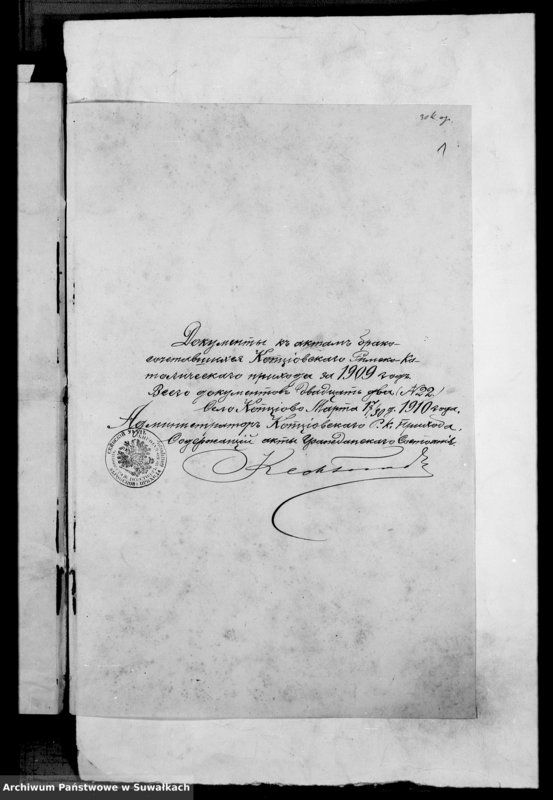 1
Документы къ актамъ брако-
сочетавшихся Котціовскаго Римско-Ка-
толическаго прихода за 1909 годъ
Всего документовъ двадцать два (№22)
Село Котціово Марта 17/30 д. 1910 года.
Администраторъ Котціовскаго Р.К. Прихода.
Содержащій акты Гражданскаго Состоянія
Archiwum Państwowe w Suwałkach